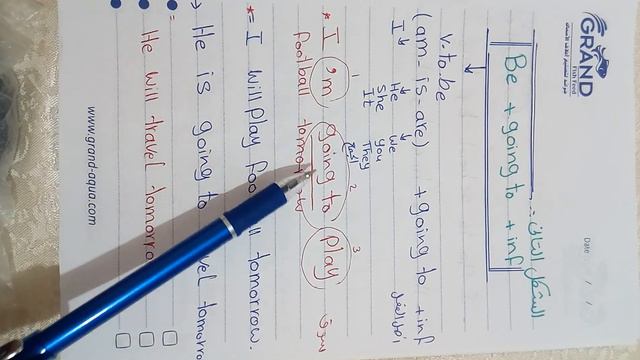 GRAND
Fish Feed
Date / /
الشكل الثاني:
Be + going to + inf
v. to be
(am - is - are) + going to + inf
I He We
She you
It They
* I 'm going to play
1 2 3
football
سوف
*= I will play tomorrow.
→ He is going to
= He will travel
www.grand-aqua.com